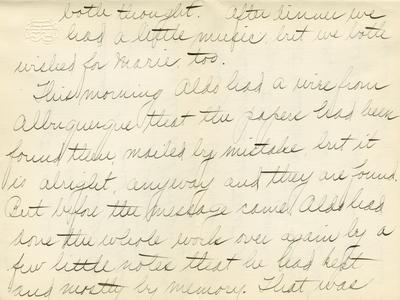 both thought. After dinner we
had a little music, but we both
wished for Marie, too.
This morning Aldo had a wire from
Albuquerque that the papers had been
found there mailed by mistake, but it
is alright, anyway and they are found.
But before the message came Aldo had
done the whole work over again by a
few little notes that he had kept
and mostly by memory. That was